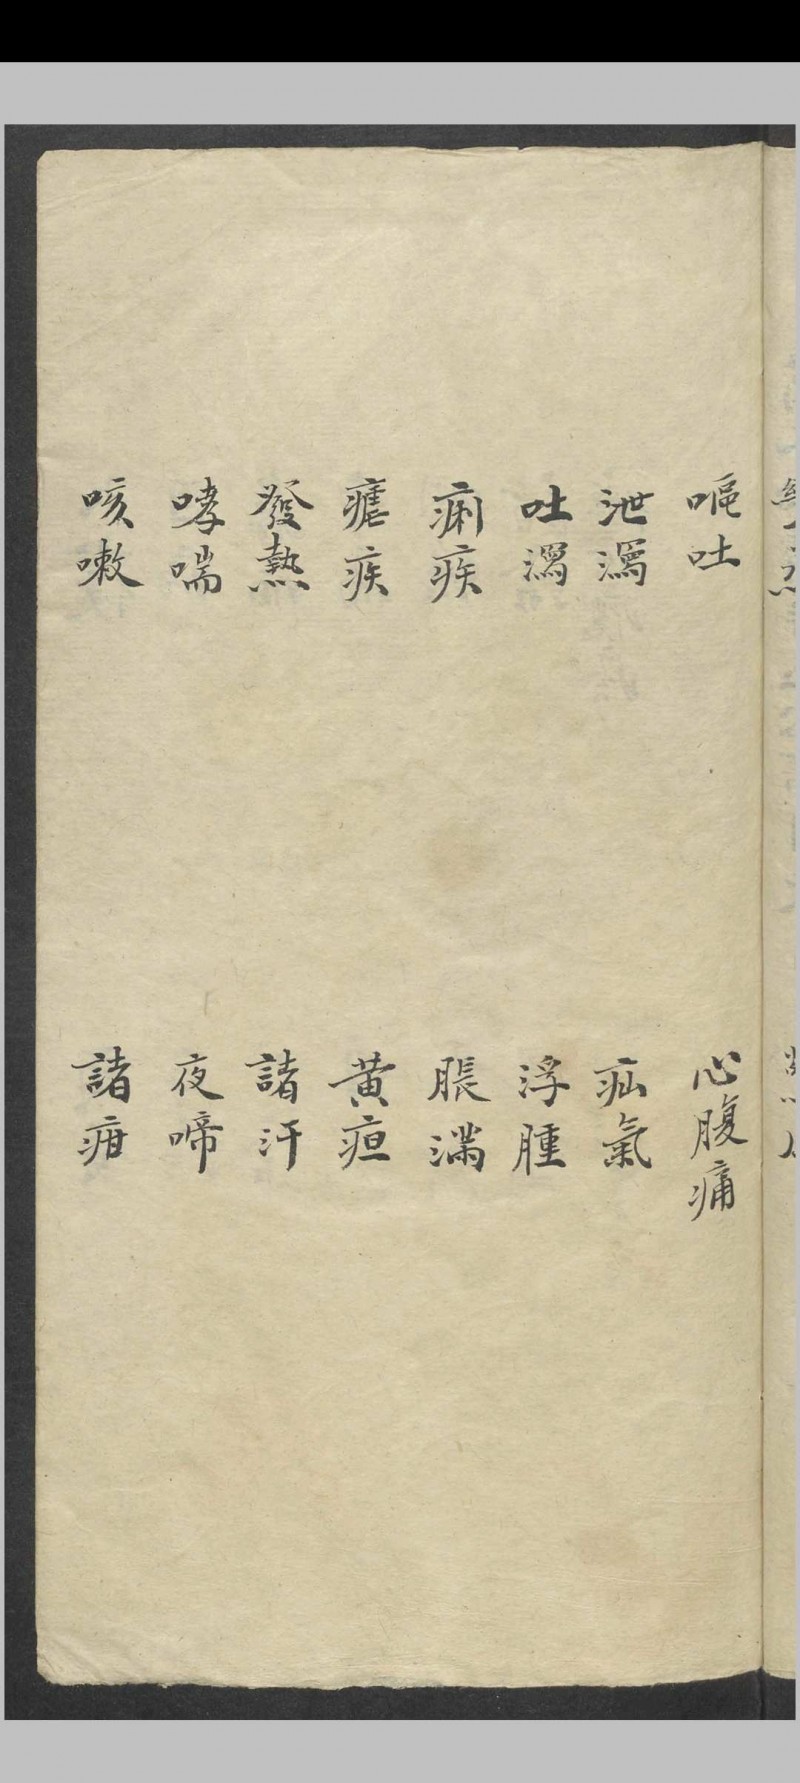 嘔吐 心腹痛
泄瀉 疝氣
吐瀉 浮腫
痢疾 脹滿
瘧疾 黃疸
發熱 諸汗
哮喘 夜啼
咳嗽 諸疳